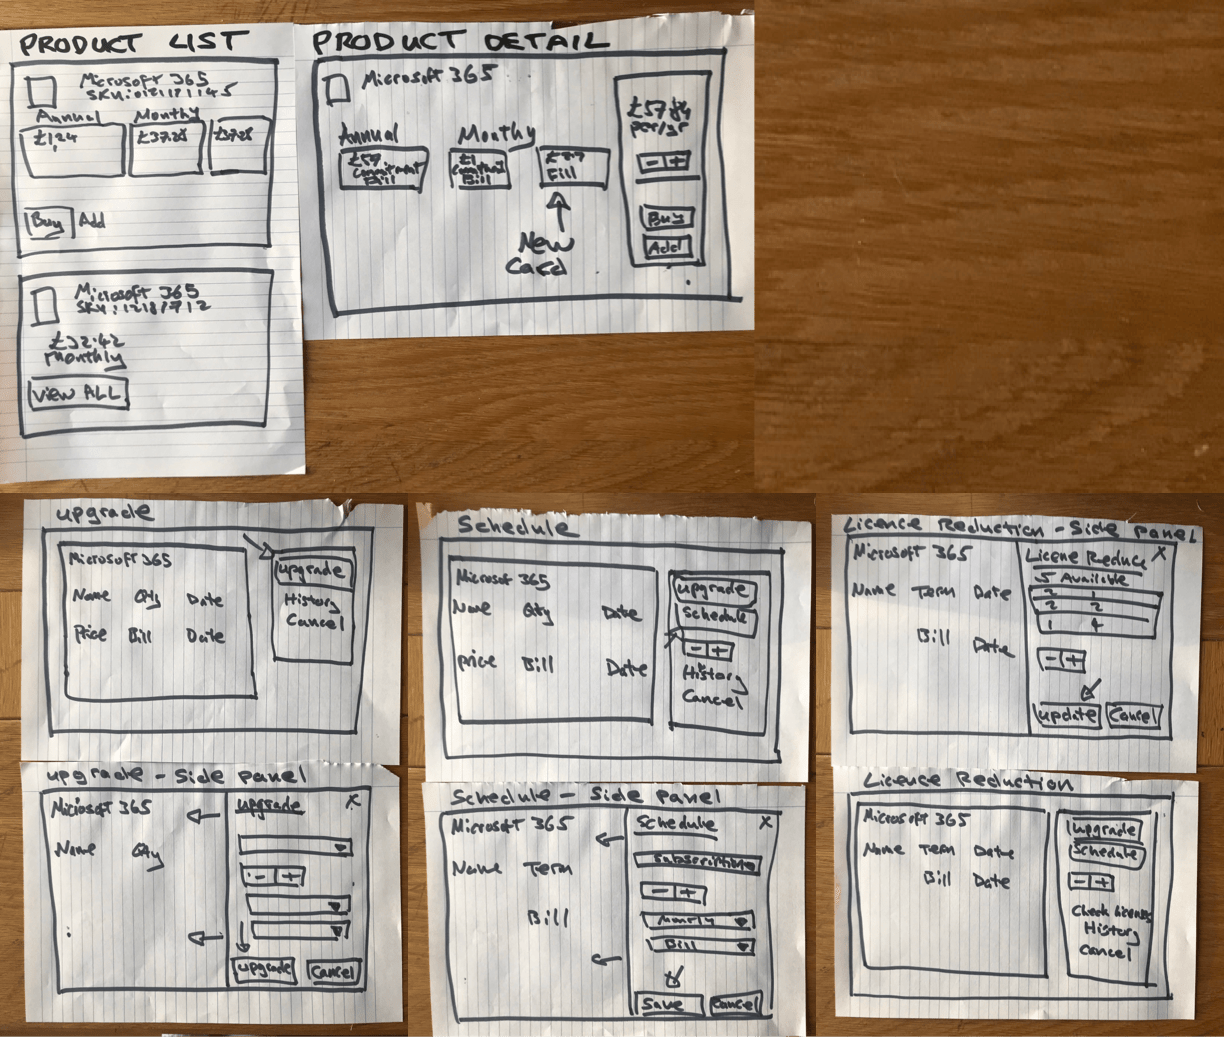 PRODUCT LIST
Microsoft 365
Annual
Monthy
£1,24
£37.28
Buy Add
Microsoft 365
£32.42
monthly
VIEW ALL
PRODUCT DETAIL
Microsoft 365
Annual
Monthy
£57
Commitment
Bill
£1
Bill
Bill
New
Card
£57.84
- +
Buy
Add
upgrade
Microsoft 365
Name Qty Date
Price Bill Date
upgrade
History
Cancel
Schedule
Microsoft 365
Name Qty Date
price Bill Date
upgrade
Schedule
- +
History
Cancel
Licence Reduction - Side panel
Microsoft 365
Name Term Date
Bill Date
Licene Reduce X
5 Available
2 1
2 2
1 4
- +
update Cancel
upgrade - Side panel
Microsoft 365
Name Qty
upgrade X
- +
upgrade Cancel
Schedule - Side panel
Microsoft 365
Name Term
Bill
Schedule X
- +
Bill
Save Cancel
Licence Reduction
Microsoft 365
Name Term Date
Bill Date
upgrade
Schedule
- +
History
Cancel